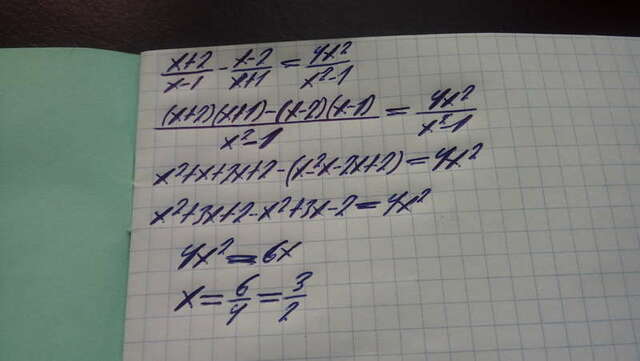 x+2/x-1 - x-2/x+1 = 4x²/x²-1
(x+2)(x+1)-(x-2)(x-1)/x²-1 = 4x²/x²-1
x²+x+2x+2-(x²-x-2x+2)=4x²
x²+3x+2-x²+3x-2=4x²
4x²=6x
x=6/4=3/2